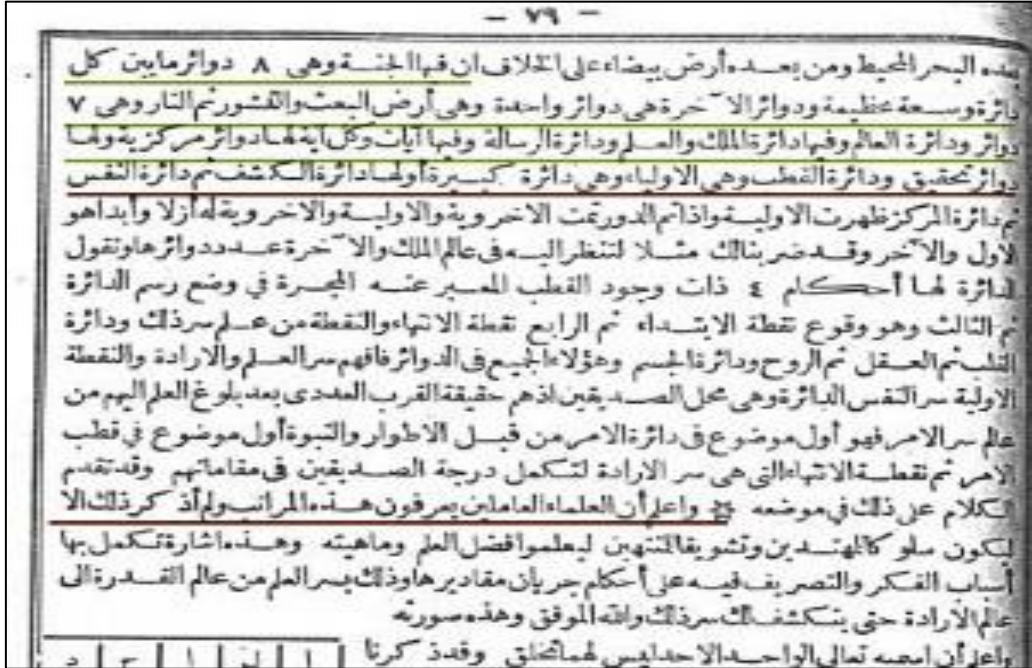 — ٧٩ —
بهذه البحر المحيط ومن بعده أرض بيضاء على الخلاف ان فيها الجنة وهى ٨ دوائر مابين كل
دائرة وسعة عظيمة ودوائر الآخرة هى دوائر واحدة وهى أرض البعث والقشور ثم النار وهى ٧
دوائر ودائرة العالم وفيها دائرة الملك والعلم ودائرة الرسالة وفيها آيات وكل آية لها دوائر مركزية ولها
دوائر تحقيق ودائرة القطب وهى الاولياء وهى دائرة كبيرة أولها دائرة الكشف ثم دائرة النفس
ثم دائرة المركز ظهرت الاولية واذا تم الدور تمت الاخروية والاولية والاخروية له أزلا وأبدا هو
الاول والآخر وقد ضربنا لك مثلا لتنظر اليه فى عالم الملك والآخرة عدد دوائرها وتقول
الدائرة لها أحكام ٤ ذات وجود القطب المعبر عنه المجرة في وضع رسم الدائرة
ثم الثالث وهو وقوع نقطة الابتداء ثم الرابع نقطة الانتهاء والنقطة من علم سر ذلك ودائرة
القلب ثم العقل ثم الروح ودائرة الجسم وهؤلاء الجميع فى الدوائر فافهم سر العلم والارادة والنقطة
الاولية سر النفس الدائرة وهى محل الصديقين اذهم حقيقة القرب العددى بعد بلوغ العلم اليهم من
عالم سر الامر فهو أول موضوع فى دائرة الامر من قبل الاطوار والنبوة أول موضوع في قطب
الامر ثم نقطة الانتهاء التى هى سر الارادة لتكمل درجة الصديقين فى مقاماتهم وقد تقدم
الكلام على ذلك في موضعه واعلم أن العلماء العاملين يعرفون هذه المراتب ولم أذكر ذلك الا
ليكون سلوكا للمهتدين وتشويقا للمنتهين ليعلموا فضل العلم وماهيته وهذه اشارة تكمل بها
أسباب الفكر والتصريف فيه على أحكام جريان مقاديرها وذلك بسر العلم من عالم القدرة الى
عالم الارادة حتى ينكشف لك سر ذلك والله الموفق وهذه صورته
واعلم أن اسمه تعالى الواحد الاحد ليس لهما تخلق وقد ذكرنا